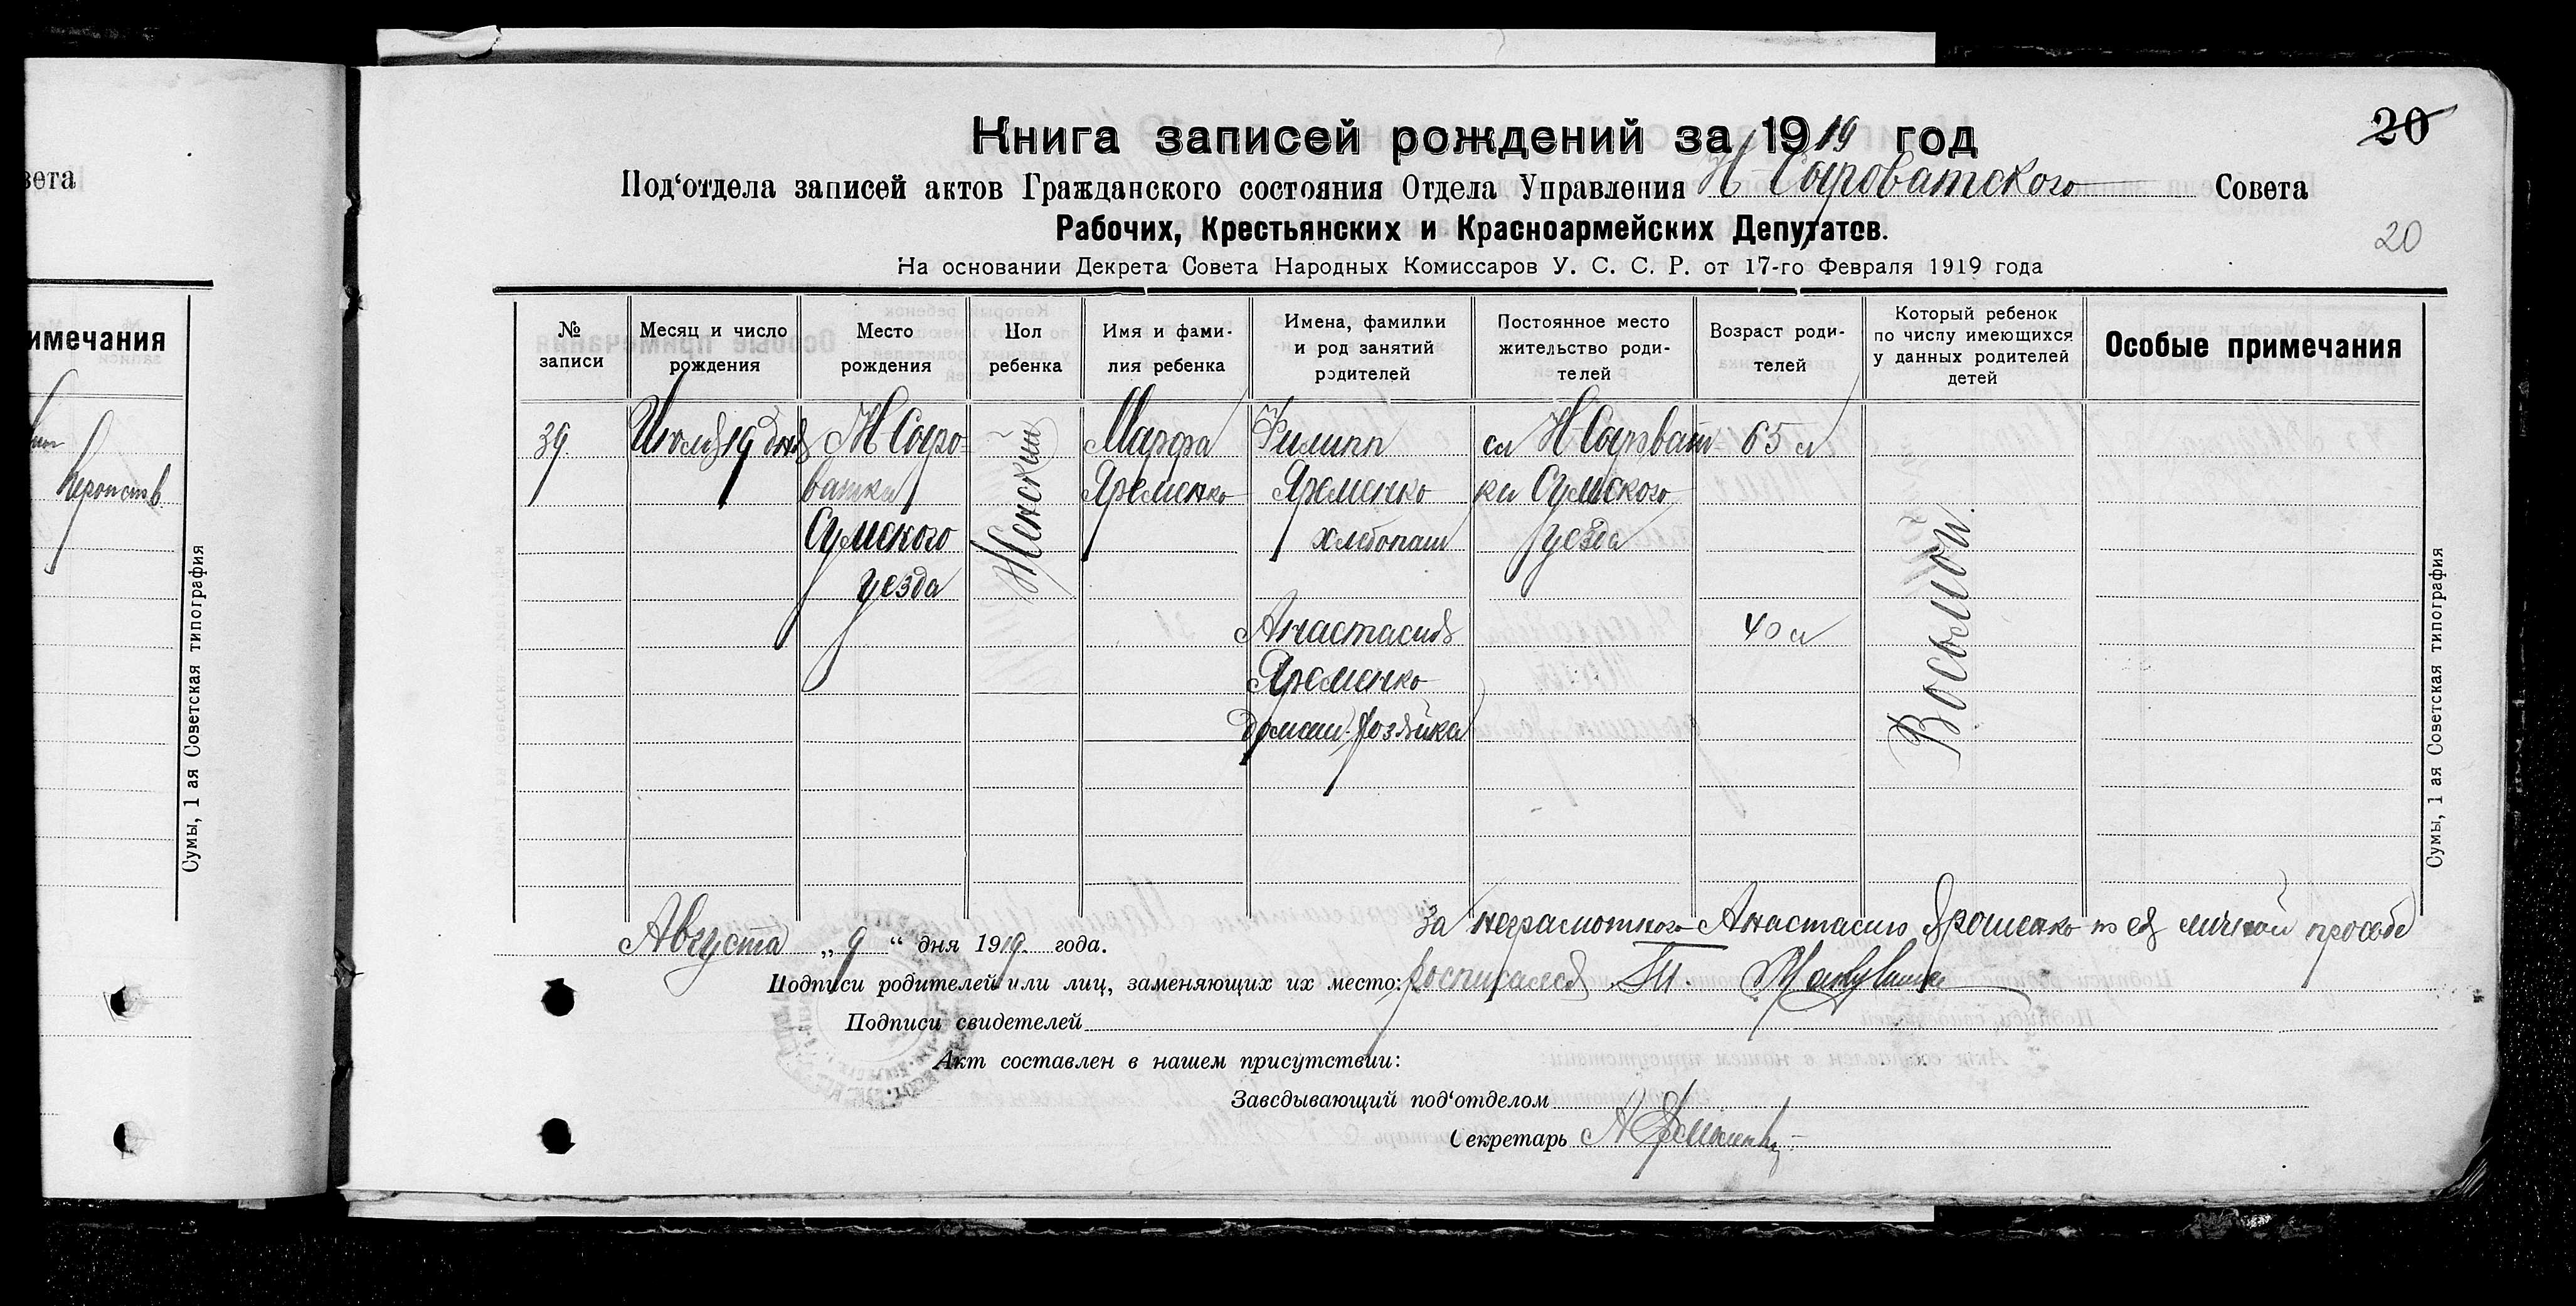 вета
имечания
Сумы, 1 ая Советская типография
20
Книга записей рождений за 1919 год
Под‘отдела записей актов Гражданского состояния Отдела Управления Н Сыроватского Совета
Рабочих, Крестьянских и Красноармейских Депутатов.
20
На основании Декрета Совета Народных Комиссаров У. С. С. Р. от 17-го Февраля 1919 года
№ записи
Месяц и число рождения
Место рождения
Пол ребенка
Имя и фами-
лия ребенка
Имена, фамилии и род занятий родителей
Постоянное место жительство роди-
телей
Возраст роди-
телей
Который ребенок по числу имеющихся у данных родителей детей
Особые примечания
39.
Июля 19 дня
Н Сыро-
ватка
Сумского
уезда
Женский
Марфа
Яременко
Филипп
Яременко
хлебопаш
Анастасия
Яременко
домаш. хозяйка
сл Н Сыроват-
ки Сумского
уезда
65 л
40 л
Восьмой.
Сумы, 1 ая Советская типография
За неграмотного Анастасию Ярошенко по ея личной прозбе
Августа „ 9 “ дня 1919 года.
Подписи родителей или лиц, заменяющих их место: росписался
Подписи свидетелей
Акт составлен в нашем присутствии:
Заведывающий под‘отделом
Секретарь